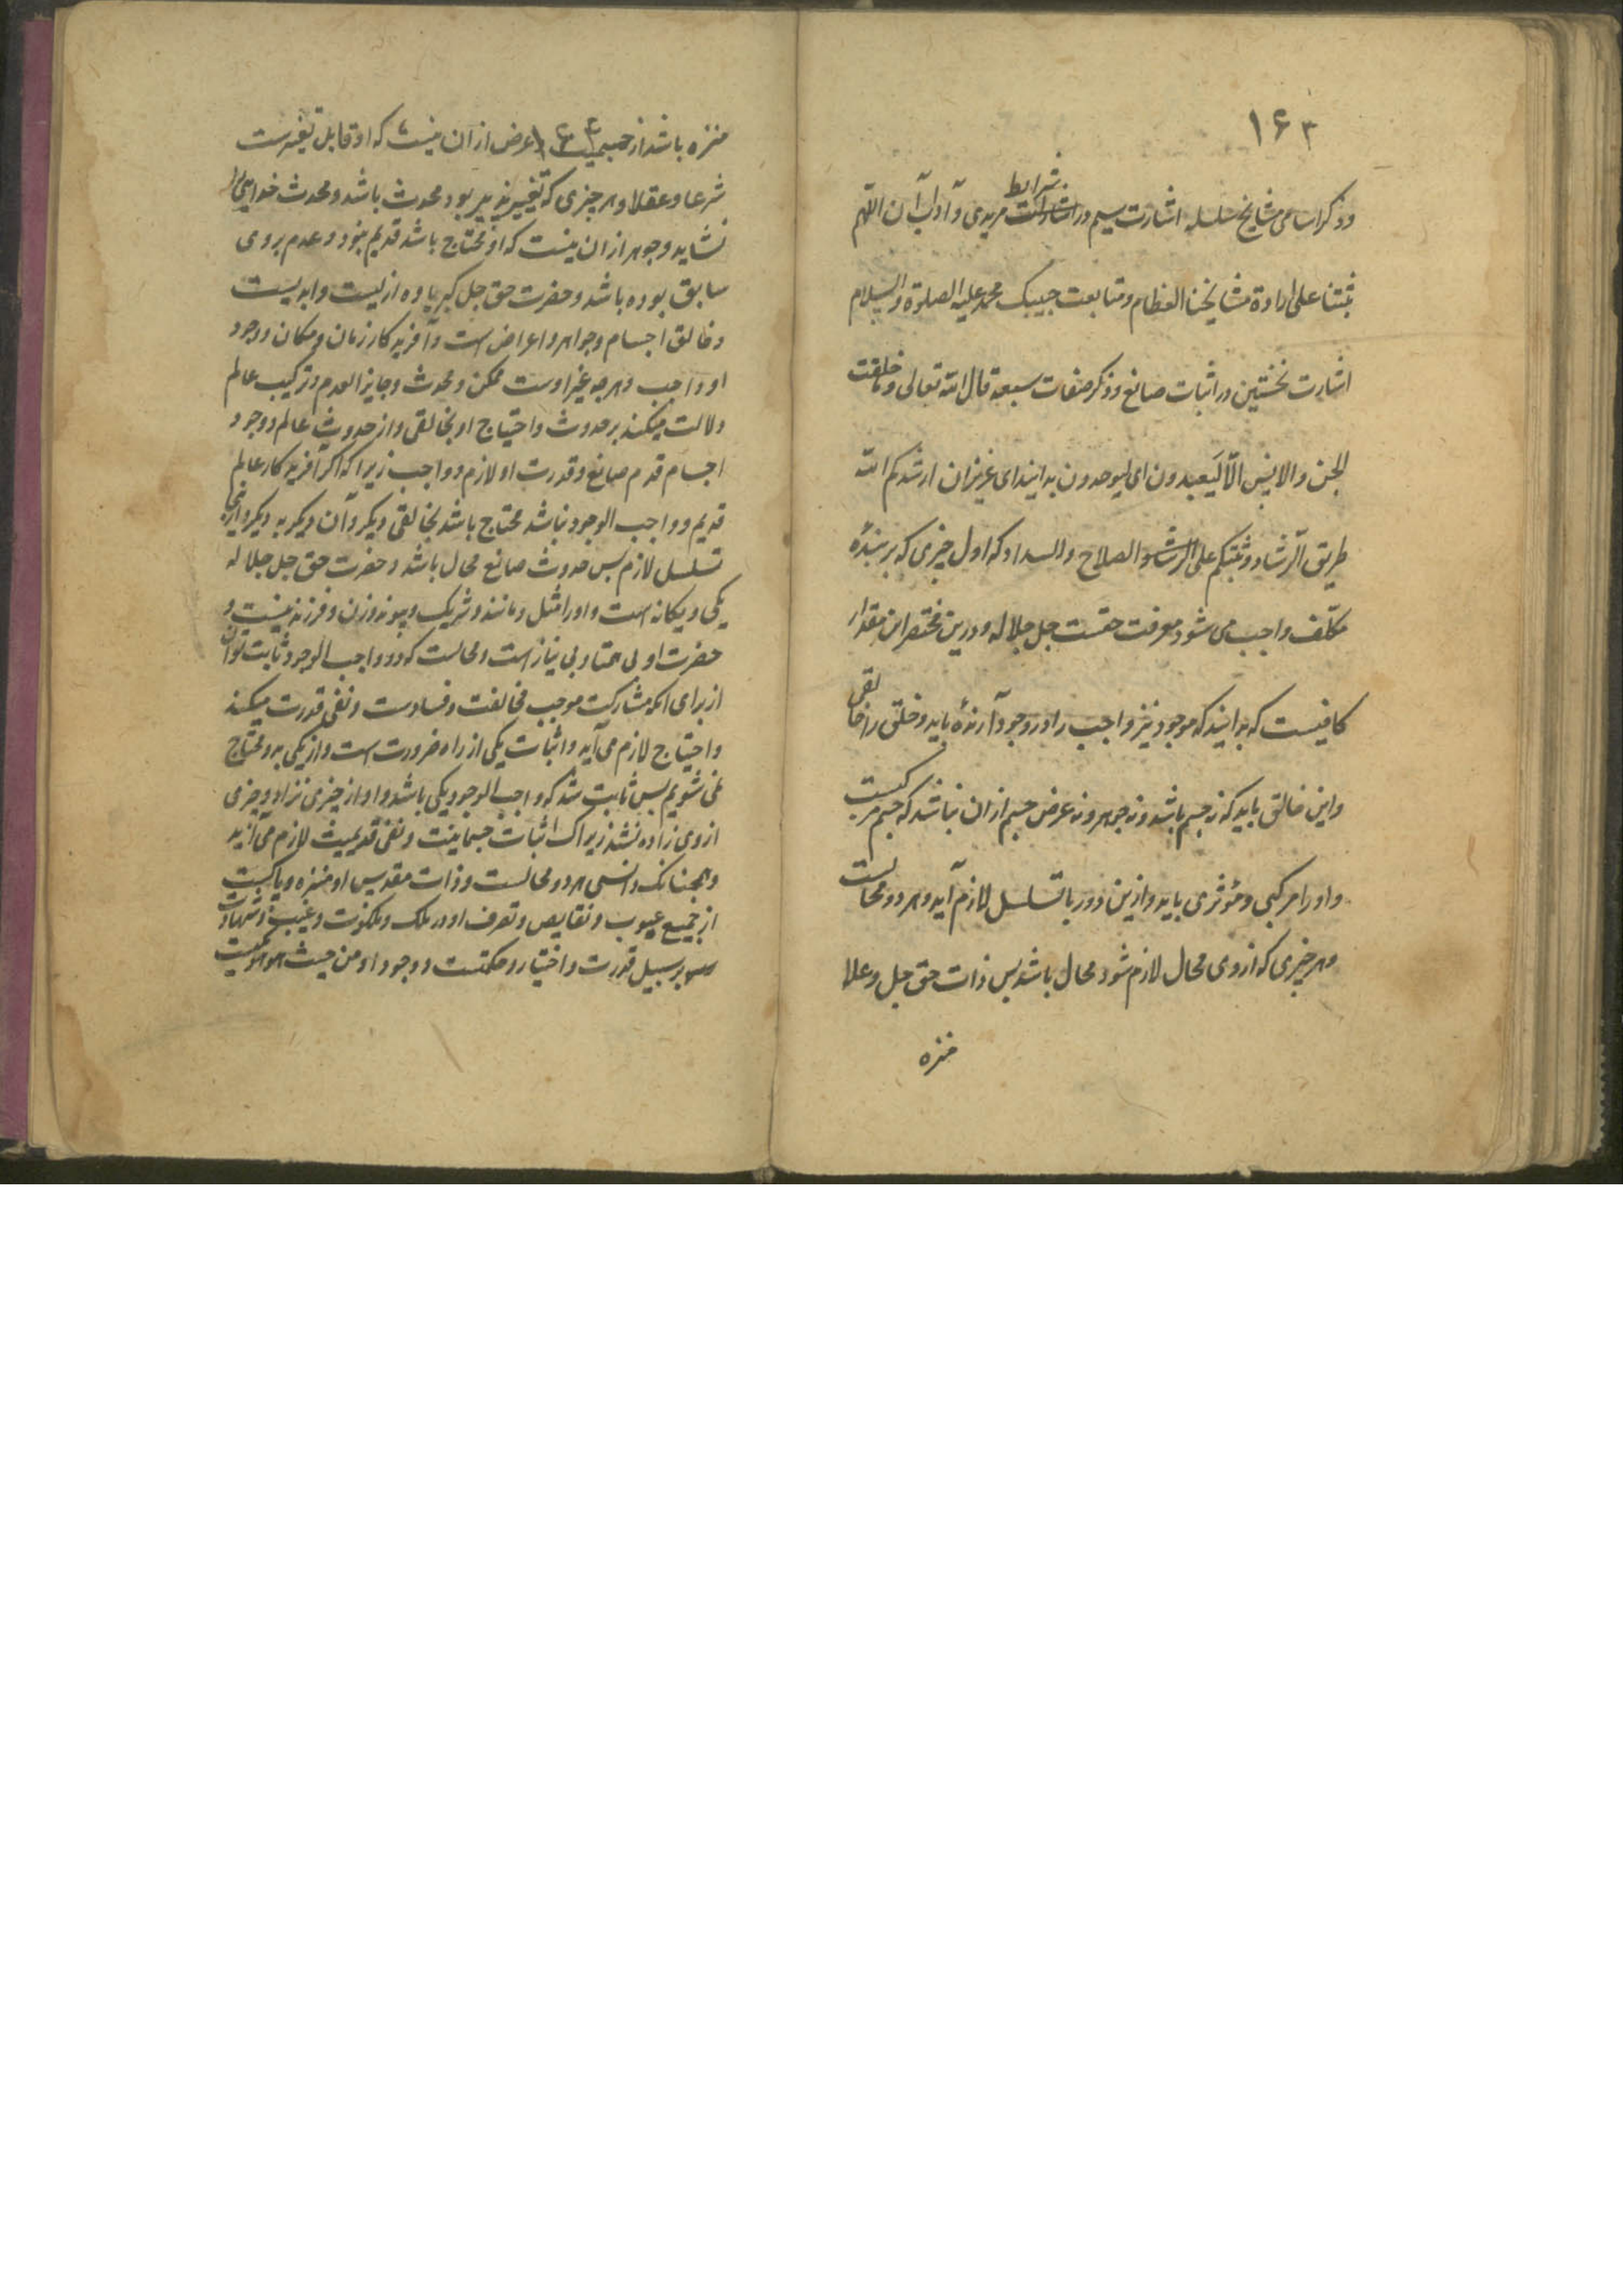 ۱۶۳
وذکر اسامی مشایخ سلسله اشارت سیم در اشارات شرایط مریدی و آداب آن اللهم
ثبتنا علی ارادة مشایخنا العظام و متابعت حبیبک محمد علیه الصلوة والسلام
اشارت نخستین در اثبات صانع و ذکر صفات سبعه قال الله تعالی و ما خلقت
الجن والانس الّا لیَعبدون ای لیوحدون بدانید ای عزیزان ارشدکم الله
طریق الرّشاد و ثبّتکم علی الرشاد والصلاح والسداد که اول چیزی که بر بندهٔ
مکلّف واجب می شود معرفت حقست جل جلاله و درین مختصر این مقدار
کافیست که بدانید که موجود نیز واجب را در وجود آرندهٔ باید و خلق را خالقی
واین خالق باید که نه جسم باشد و نه جوهر و نه عرض جسم از ان نباشد که جسم مرکبست
و او را مرکبی و مؤثری باید و ازین دور یا تسلسل لازم آید و هر دو محالست
وهر چیزی که از وی محال لازم شود محال باشد پس ذات حق جل وعلا
منزه
۱۶۴
منزه باشد از جسمیت عرض از ان نیست که او قابل تغیرست
شرعا و عقلا و هر چیزی که تغییر پذیر بود محدث باشد و محدث خدایی را
نشاید و جوهر از ان نیست که او محتاج باشد قدیم نبود و عدم بر وی
سابق بوده باشد و حضرت حق جل کبریاوه ازلیست و ابدیست
و خالق اجسام و جواهر و اعراض است و آفریدکار زمان و مکان و وجود
او واجب و هر چه غیر اوست ممکن و محدث و جایز العدم و ترکیب عالم
دلالت میکند بر حدوث و احتیاج او بخالقی و از حدوث عالم و وجود
اجسام قدم صانع و قدرت او لازم و واجب زیرا که اکر آفریدکار عالم
قدیم و واجب الوجود نباشد محتاج باشد بخالقی دیکر و آن دیکر به دیکر و ازینجا
تسلسل لازم پس حدوث صانع محال باشد و حضرت حق جل جلاله
یکی و یکانه است و او را مثل و مانند و شریک و پیوند و زن و فرزند نیست و
حضرت او بی همتا و بی نیاز است و محالست که دو واجب الوجود ثابت توان
از برای انکه مشارکت موجب مخالفت و فسادست و نفی قدرت میکند
و احتیاج لازم می آید و اثبات یکی از راه ضرورت است و از یکی به دو محتاج
نمی شویم پس ثابت شد که واجب الوجود یکی باشد و او از چیزی نزاد و چیزی
از وی زاده نشد زیراک اثبات جسمانیت و نفی قدیمیت لازم می آید
و همچنانک دانستی هر دو محالست و ذات مقدس او منزه و پاکست
از جمیع عیوب و نقایص و تصرف او در ملک و ملکوت و غیب و شهادت
بر سبیل قدرت و اختیار و حکمتست و وجود او من حیث هو هو